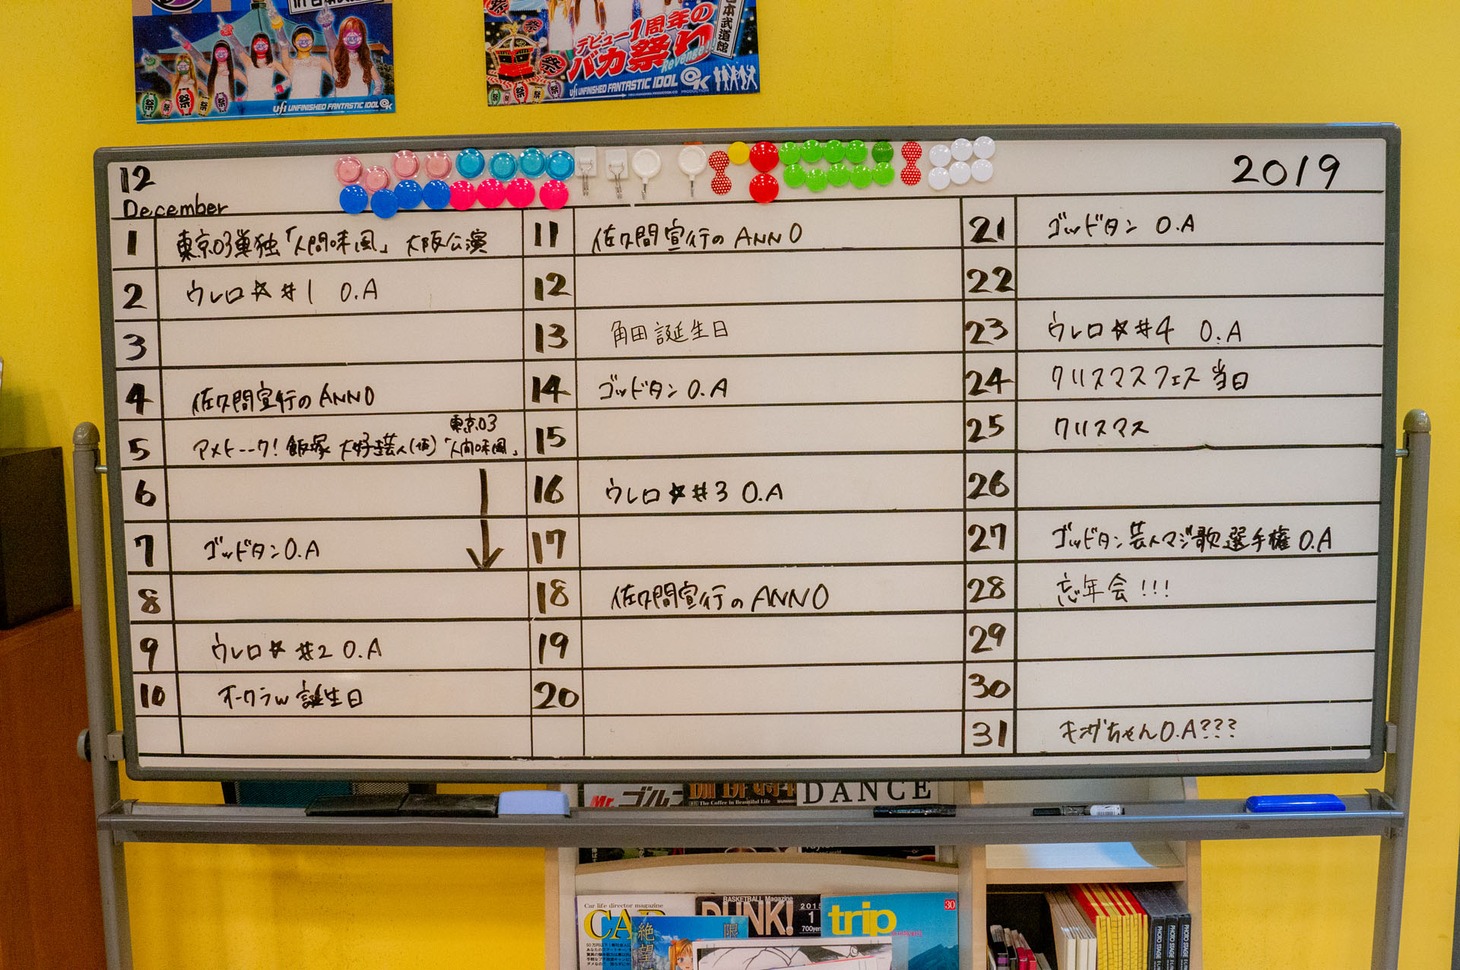 in 日本武
祭
ufi UNFINISHED FANTASTIC IDOL
デビュー1周年の
バカ祭り
Revenge!!
日本武道館
祭
ufi UNFINISHED FANTASTIC IDOL
12
December
2019
1 東京03単独「人間味風」 大阪公演
2 ウレロ☆#1 O.A
3
4 佐久間宣行のANN0
5 アメトーーク!飯塚 大好き芸人(仮) 東京03「人間味風」
6
7 ゴッドタンO.A
8
9 ウレロ☆ #2 O.A
10 オークラw 誕生日
11 佐久間宣行のANN0
12
13 角田誕生日
14 ゴッドタンO.A
15
16 ウレロ☆#3 O.A
17
18 佐久間宣行のANN0
19
20
21 ゴッドタン O.A
22
23 ウレロ☆#4 O.A
24 クリスマスフェス当日
25 クリスマス
26
27 ゴッドタン芸人マジ歌選手権O.A
28 忘年会!!!
29
30
31 キングちゃんO.A???
Mr.ゴルフ
珈琲時間
The Coffee in Beautiful Life
DANCE
Car life director magazine
CAR
BASKETBALL Magazine
DUNK!
2015
1
700yen
trip
30
絶望
限